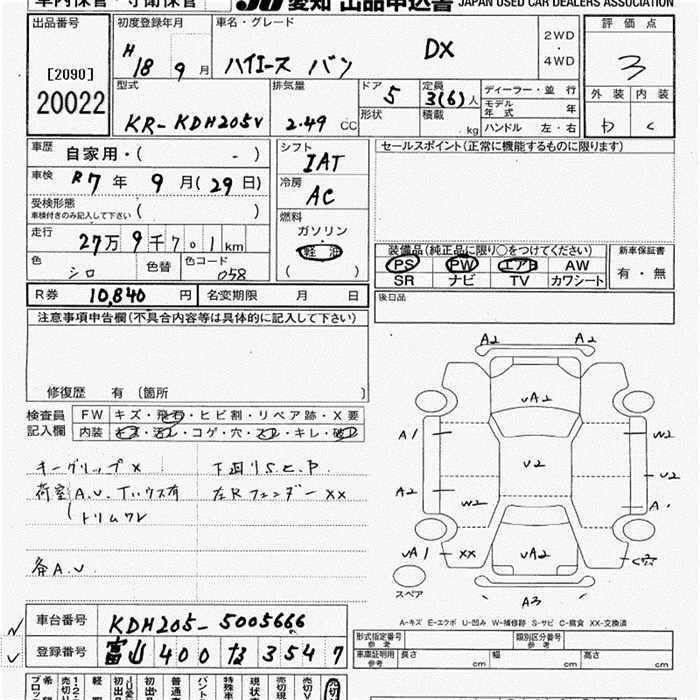 JU 愛知 出品申込書 JAPAN USED CAR DEALERS ASSOCIATION
出品番号
[2090]
20022
初度登録年月
H 18 9 月
車名・グレード
ハイエース バン DX
2WD
・
4WD
評価点
3
外装 内装
b c
型式
KR-KDH205V
排気量
2.49 CC
ドア
5
形状
定員
3(6)人
積載
kg
ディーラー・並行
モデル年式 年
ハンドル 左・右
車歴
自家用・( - )
車検
R7 年 9 月(29日)
受検形態
車検付きのみ記入して下さい ( )
走行
27万 9千 701 km
色
シロ
色替
色コード
058
シフト
IAT
冷房
AC
燃料
ガソリン
軽油
( )
セールスポイント(正常に機能するものに限ります)
装備品(純正品に限り○をつけてください)
PS PW エアB AW
SR ナビ TV カワシート
新車保証書
有・無
後日品
R券 10,840 円 名変期限 月 日
注意事項申告欄(不具合内容等は具体的に記入して下さい)
修復歴 有 (箇所 )
検査員記入欄
FW キズ・飛石・ヒビ割・リペア跡・X要
内装 キズ・汚レ・コゲ・穴・スレ・キレ・破レ
キーグリップX 下回りS.C.P
荷室 A.U.Tハウス有 左Rフェンダー XX
トリムワレ
各A.U
A2 A2
UA2
A1 W2
U2 U2
A2 W2 A1
UA1 XX UA2
A3
スペア
A-キズ E-エクボ U-凹み W-補修跡 S-サビ C-腐食 XX-交換済
車台番号
KDH205-5005666
登録番号
富山 400 な 3547
形式指定番号 参考
類別区分番号 参考
車庫証明用 参考 長さ cm 幅 cm 高さ cm